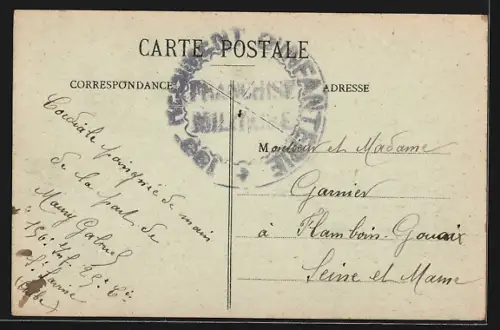 CARTE POSTALE
CORRESPONDANCE
ADRESSE
RÉGIMENT D'INFANTERIE
FRANCHISE
MILITAIRE
156
Cordiale poignée de main
de la part de
Gabriel
156e Inf. 25e Cie
(Aube)
Monsieur et Madame
Garnier
à Flamboin-Gouaix
Seine et Marne